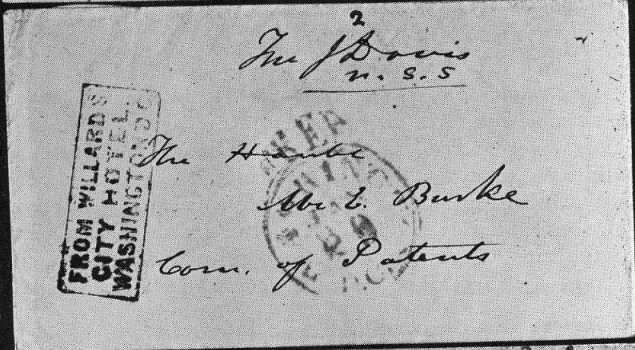 2
J Davis
U.S.S
FROM WILLARDS
CITY HOTEL.
WASHINGTON DC
The Honble
Burke
Com. of Patents
FREE